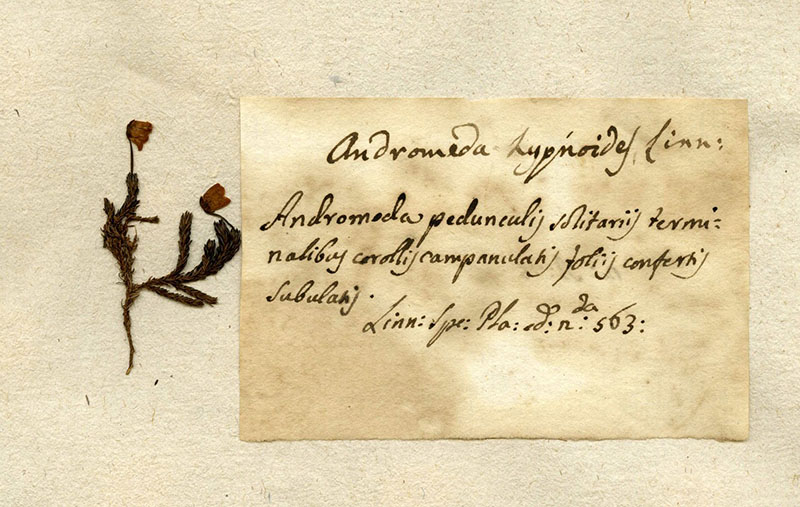 Andromeda hypnoides Linn:
Andromeda pedunculis solitariis termi-
nalibus corollis campanulatis foliis confertis
subulatis.
Linn: Spe: Pla: ed: n: da 563: